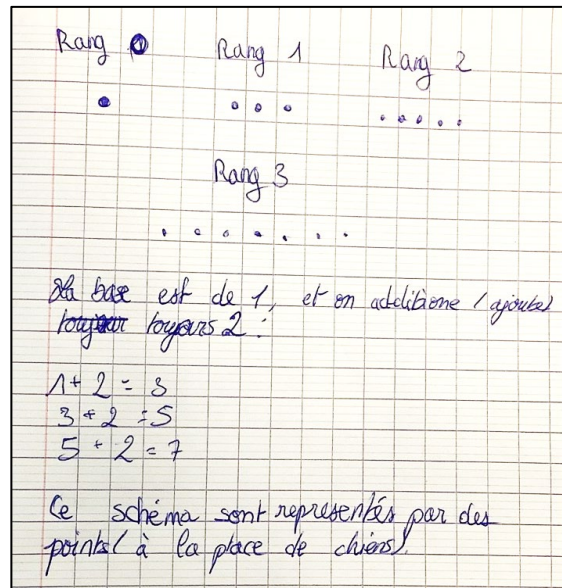 Rang 0 Rang 1 Rang 2
Rang 3
La base est de 1, et on additione (ajoute)
toujour toujours 2 :
1 + 2 = 3
3 + 2 = 5
5 + 2 = 7
Ce schéma sont représentés par des
points (à la place de chiens).